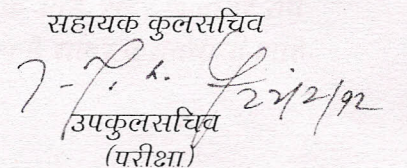 सहायक कुलसचिव
22/2/92
उपकुलसचिव
(परीक्षा)